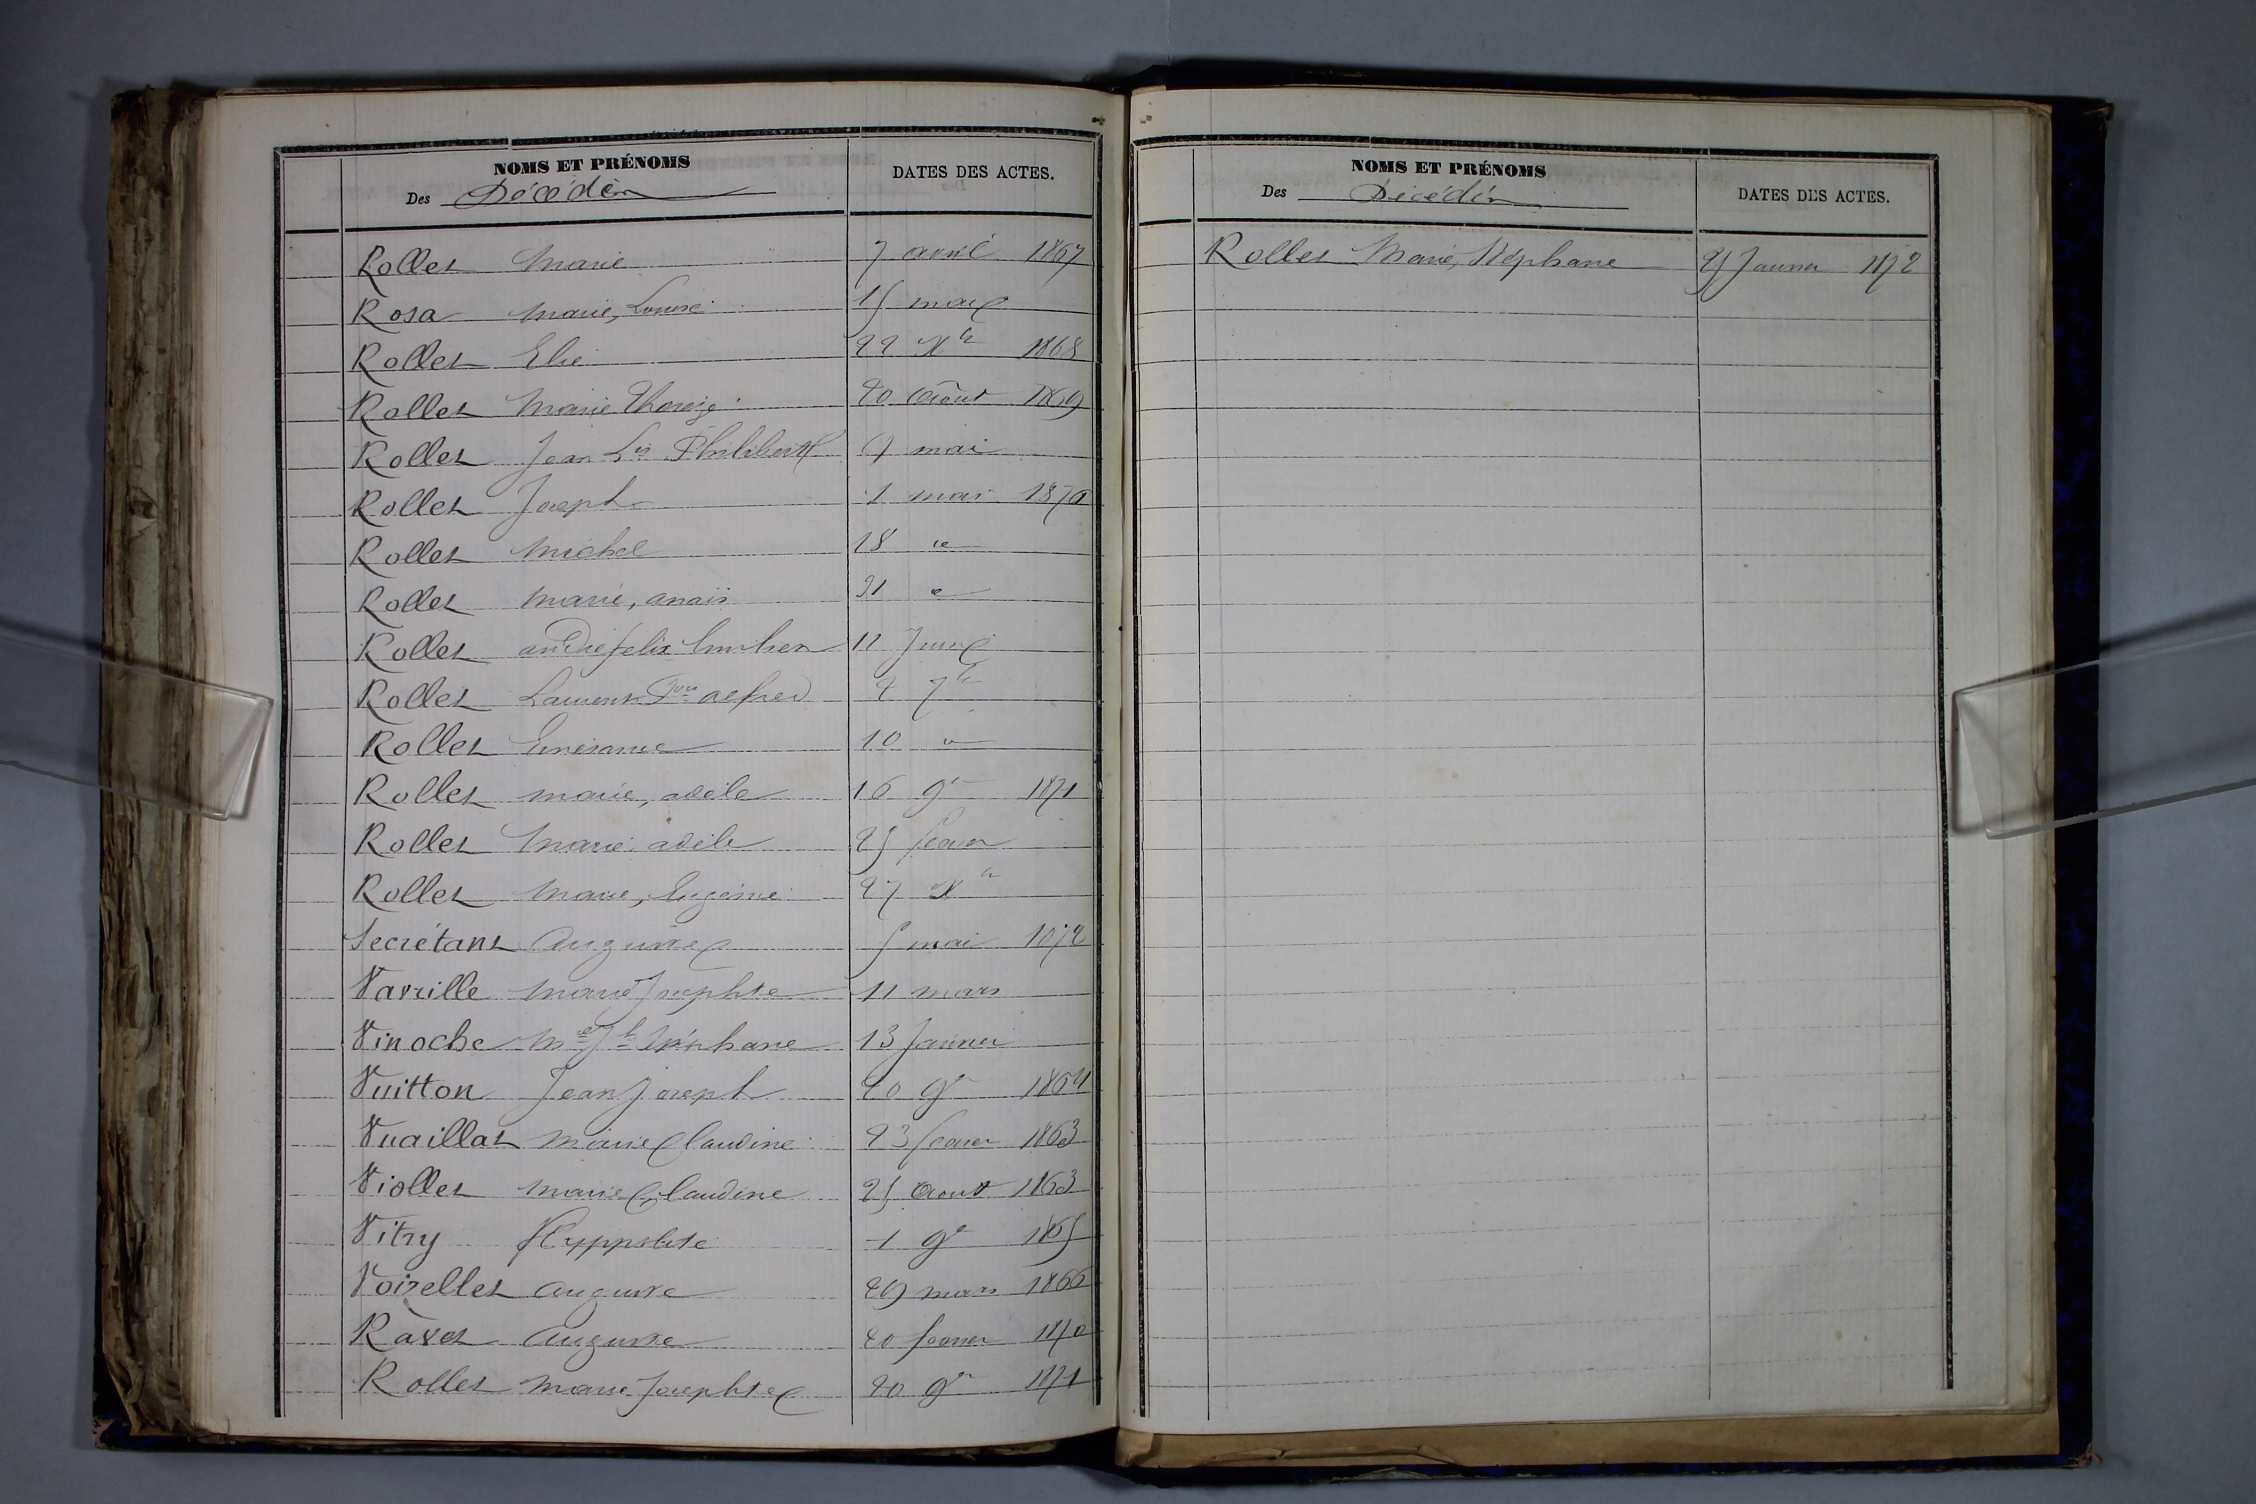 NOMS ET PRÉNOMS
Des Décédés
DATES DES ACTES.
Rollet Marie 7 avril 1867
Rosa Marie, Louise 15 mai
Rollet Elie 22 Xbre 1868
Rollet Marie 20 Août 1869
Rollet Jean Lis Philibert 9 mai
Rollet Joseph 1 mai 1870
Rollet Michel 18 "
Rollet Marie, anaïs 31 "
Rollet andré felix 11 Juin
Rollet Laurent alfred 4 7bre
Rollet 10 "
Rollet marie, adèle 16 9bre 1871
Rollet Marie adèle 25 fevrier
Rollet Marie, Eugénie 27 Xbre
Secrétant Auguste 5 mai 1872
Vavrille Marie Josephte 11 mars
Vinoche Mie Jh Stéphane 13 Janvier
Vuitton Jean Joseph 20 9bre 1864
Vuaillat Marie Claudine 23 fevrier 1863
Viollet Marie Claudine 25 Aout 1863
Vitry Hyppolite 1 9bre 1865
Voizellet Auguste 29 mars 1866
Ravet Auguste 20 fevrier 1870
Rollet Marie Josephte 20 9bre 1871
NOMS ET PRÉNOMS
Des Décédés
DATES DES ACTES.
Rollet Marie, Stéphane 25 Janvier 1872